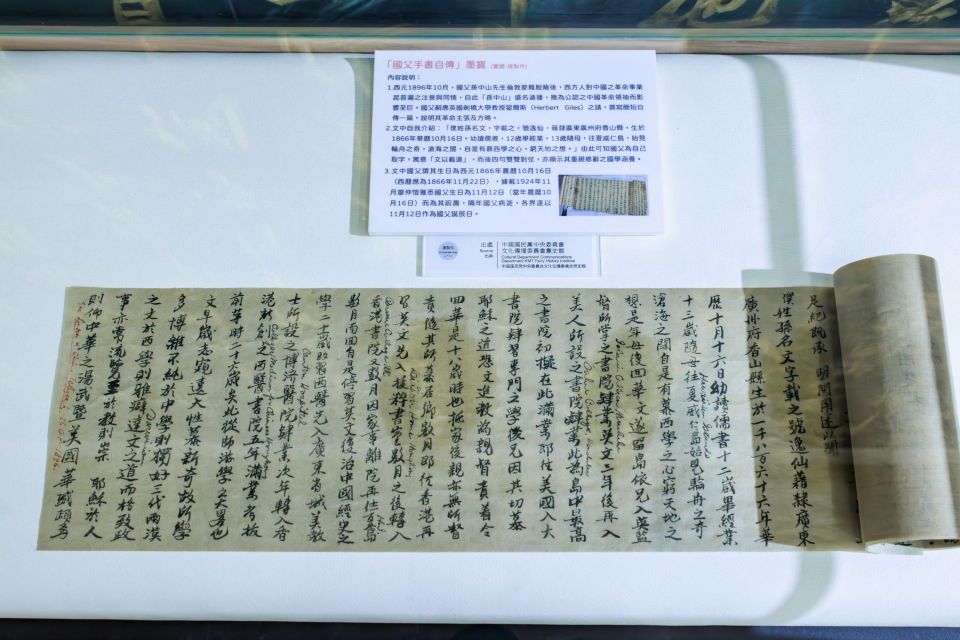 「國父手書自傳」墨寶
內容說明：
1.西元1896年10月，國父孫中山先生倫敦蒙難脫險後，西方人對中國之革命事業
起普遍之注意與同情，自此「孫中山」盛名遠播，幾為公認之中國革命領袖而影
響至巨。國父嗣應英國劍橋大學教授翟爾斯（Herbert Giles）之請，撰寫簡短自
傳一篇，說明其革命主張及方略。
2.文中自我介紹：「僕姓孫名文，字載之，號逸仙，籍隸廣東廣州府香山縣，生於
1866年華曆10月16日。幼讀儒書，12歲畢經業。13歲隨母，往夏威仁島，始見
輪舟之奇，滄海之闊，自是有慕西學之心，窮天地之想。」由此可知國父為自己
取字，寓意「文以載道」，而後四句雙雙對仗，亦顯示其重視修辭之國學涵養。
3.文中國父謂其生日為西元1866年農曆10月16日
（西曆應為1866年11月22日），據載1924年11
月廖仲愷獲悉國父生日為11月12日（當年農曆10
月16日）而為其祝壽，隔年國父病逝，各界遂以
11月12日作為國父誕辰日。
出處
Source
中國國民黨中央委員會
文化傳播委員會黨史館
Cultural Department Communications
Department KMT Party History Institute
明問用述以聞
僕姓孫名文字載之號逸仙藉隸廣東
廣州府香山縣生於一千八百六十六年華
歷十月十六日幼讀儒書十二歲畢經業
十三歲隨母往夏威仁島始見輪舟之奇
滄海之闊自是有慕西學之心窮天地之
想是年母復回華文遂留島依兄入英監
督所掌之書院肄業英文三年後再入
美人所設之書院肄業此為島中最高
之書院初擬在此滿業即往美國入大
書院肄習專門之學後兄因其切慕
耶穌之道恐文進教為親督責着令
回華是十八歲時也抵家後親亦無所督
責隨其所慕居鄉數月即往香港再
習英文先入拔粹書室數月之後轉入
香港書院又數月因家事離院再往夏島
數月而回自是停習英文復治中國經史之
學二十一歲改習西醫先入廣東省城美教
士所設之博濟醫院肄業次年轉入香
港新創之西醫書院五年滿業考拔
前華時二十六歲矣此從師游學之大畧也
文早歲志窺遠大性慕新奇故所學
多博雜不純於中學則獨好三代兩漢
之文於西學則雅癖達文之道而格致政
事亦常流覽至於教則崇 耶穌於人
則仰中華之湯武暨美國華盛頓焉